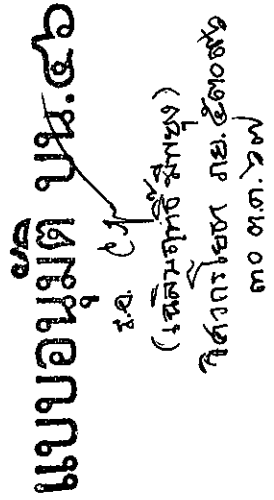 แบบอนุมัติ บน.๔๖
ร.อ.
(เฉลิมฤทธิ์ มีพยุง)
วิศวกรโยธา ภย.๕๓๐๗๖
๓๐ ต.ค. ๖๗